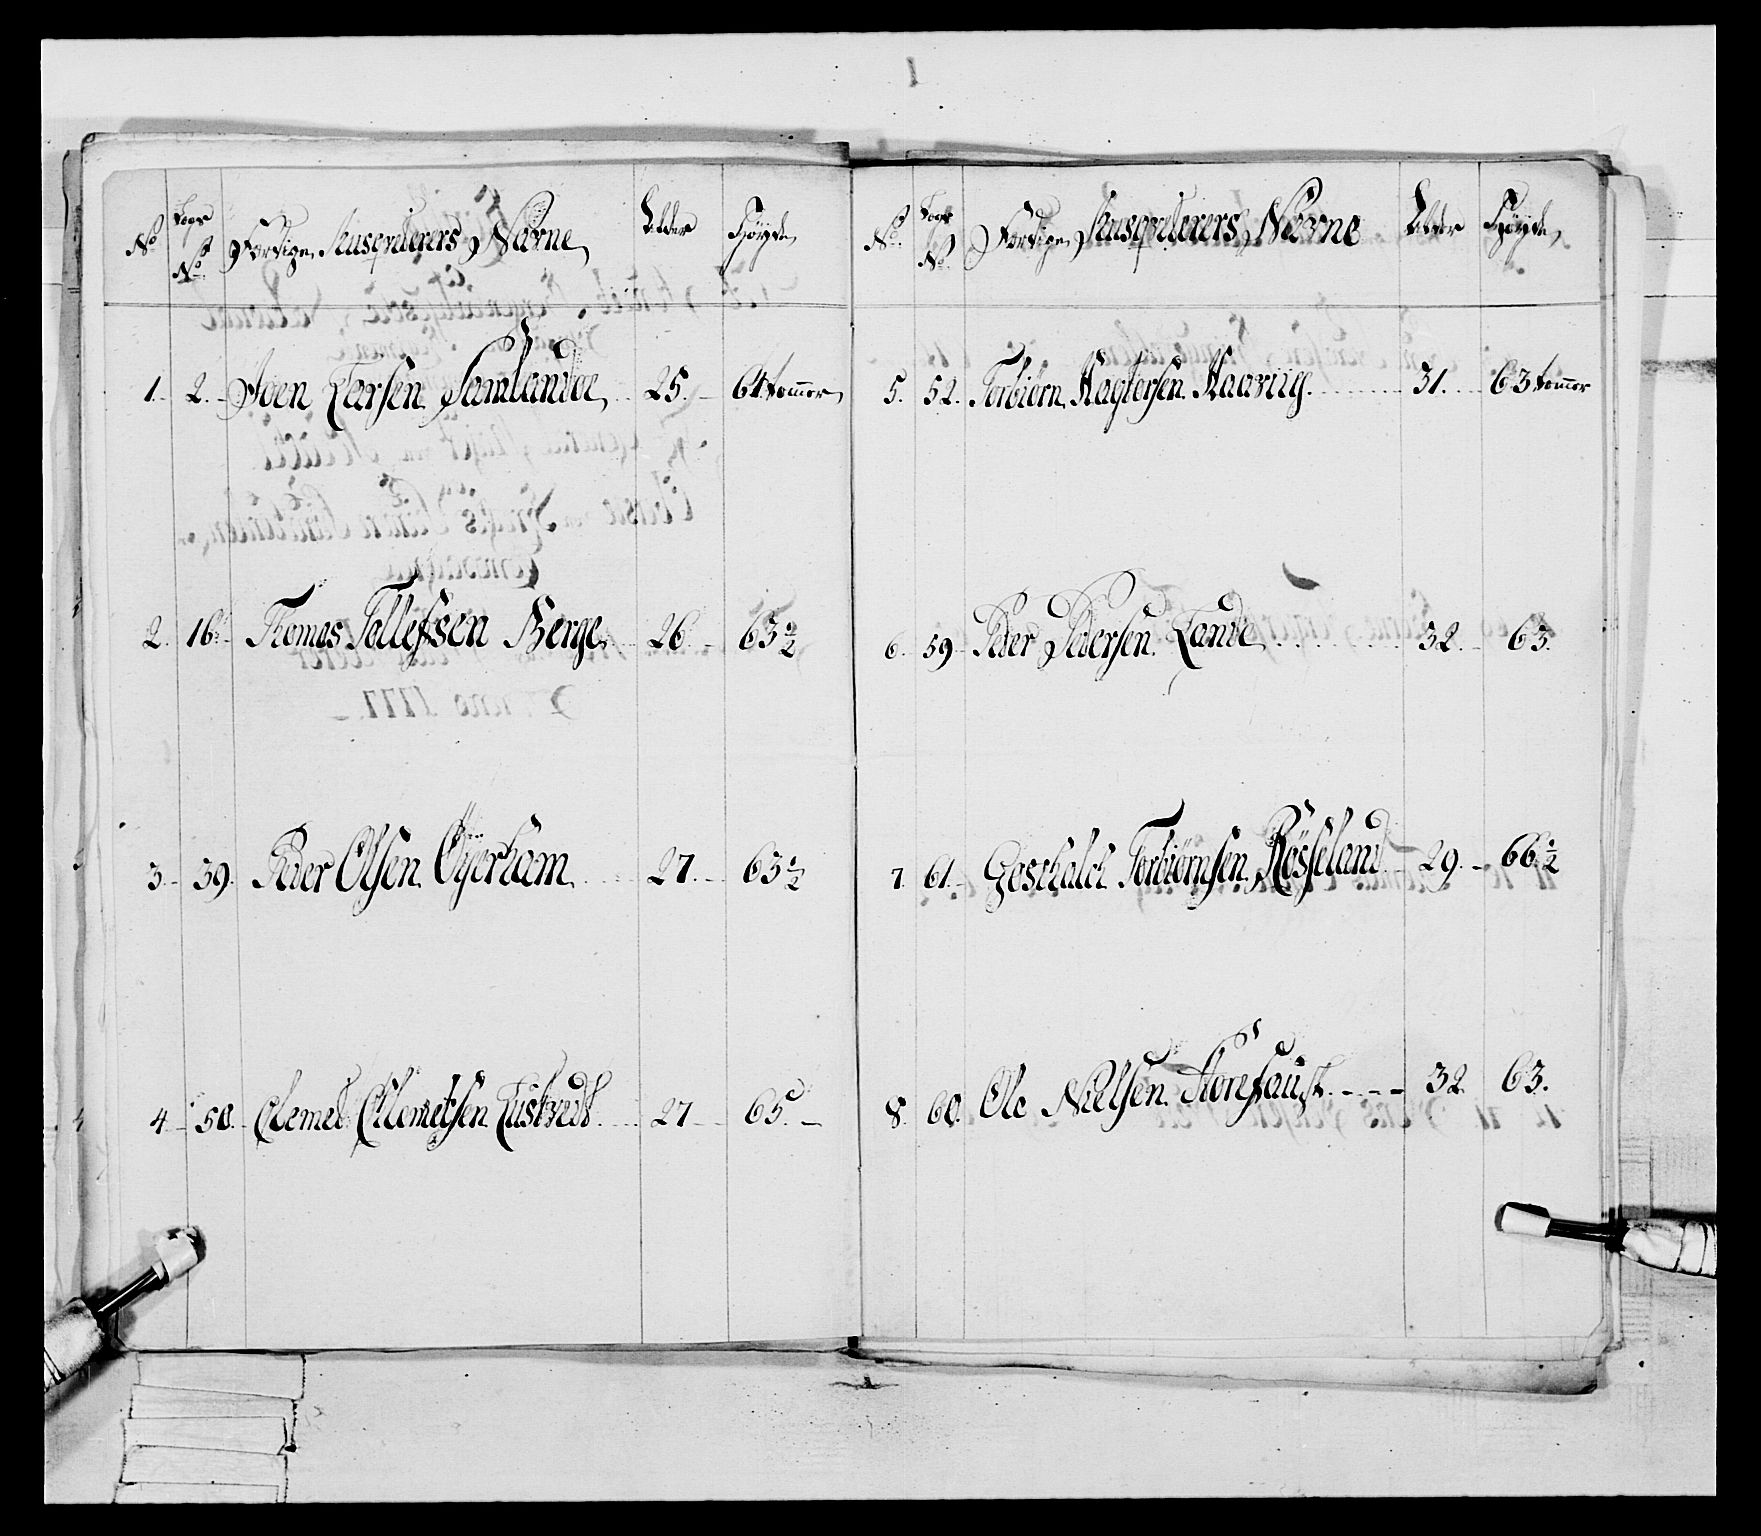 No Logs No Færdige Musquterers Navne Alder Høyde
1. 2. Joen Larsen Samlandøe 25. 64 tommer
2. 16. Thomas Tollefsen Berge 26. 63 1/2
3. 39. Peder Olsen Öyerham 27. 63 1/2
4. 50. Clemet Clemetsen Liustvedt 27 65.
No. Logs No. Færdige Musquterers Navne Alder Høyde
5. 52. Torbiörn Hagtorsen Haavrug 31. 63 tommer
6. 59 Peder Pedersen Lande 32. 63.
7. 61. Goschalch Torbiörnsen Rösseland 29. 66 1/2
8. 60. Ole Nielsen 32. 63.